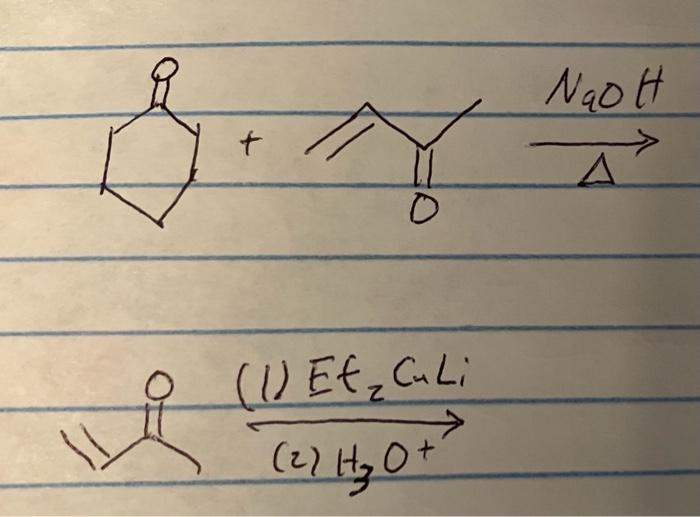 O
+ NaOH
Δ
O
O (1) Et₂CuLi
(2) H₃O⁺